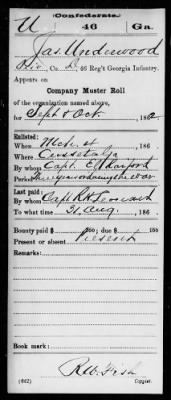 Confederate.
U 46 Ga.
Jas. Underwood
Co. D, 46 Reg't Georgia Infantry.
Appears on
Company Muster Roll
of the organization named above,
for Sept & Oct, 1862
Enlisted:
When Mch 186
Where Cusseta Ga
By whom Capt.
Period
Last paid:
By whom Capt R
To what time 31 Aug, 186
Bounty paid $ 100; due $ 100
Present or absent Present
Remarks:
Book mark:
R.W.
(642) Copyist.